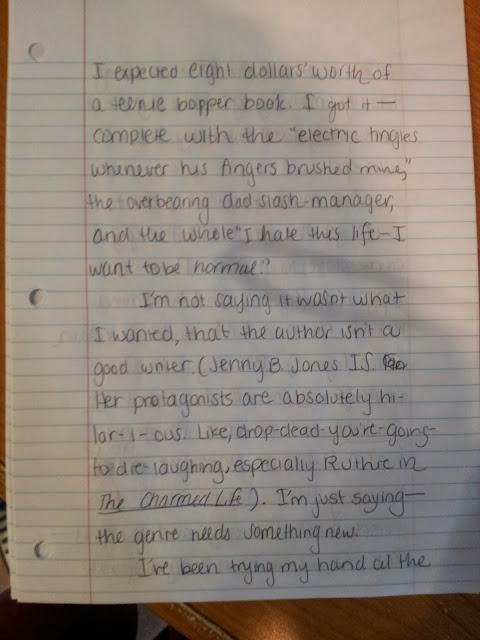 I expected eight dollars' worth of
a teenie bopper book. I got it —
complete with the "electric tingles
whenever his fingers brushed mine,"
the overbearing dad-slash-manager,
and the whole "I hate this life – I
want to be normal."
I'm not saying it wasn't what
I wanted, that the author isn't a
good writer. (Jenny B. Jones IS.
Her protagonists are absolutely hi-
lar-i-ous. Like, drop-dead-you're-going-
to-die-laughing, especially Ruthie in
The Charmed Life). I'm just saying —
the genre needs something new.
I've been trying my hand at the